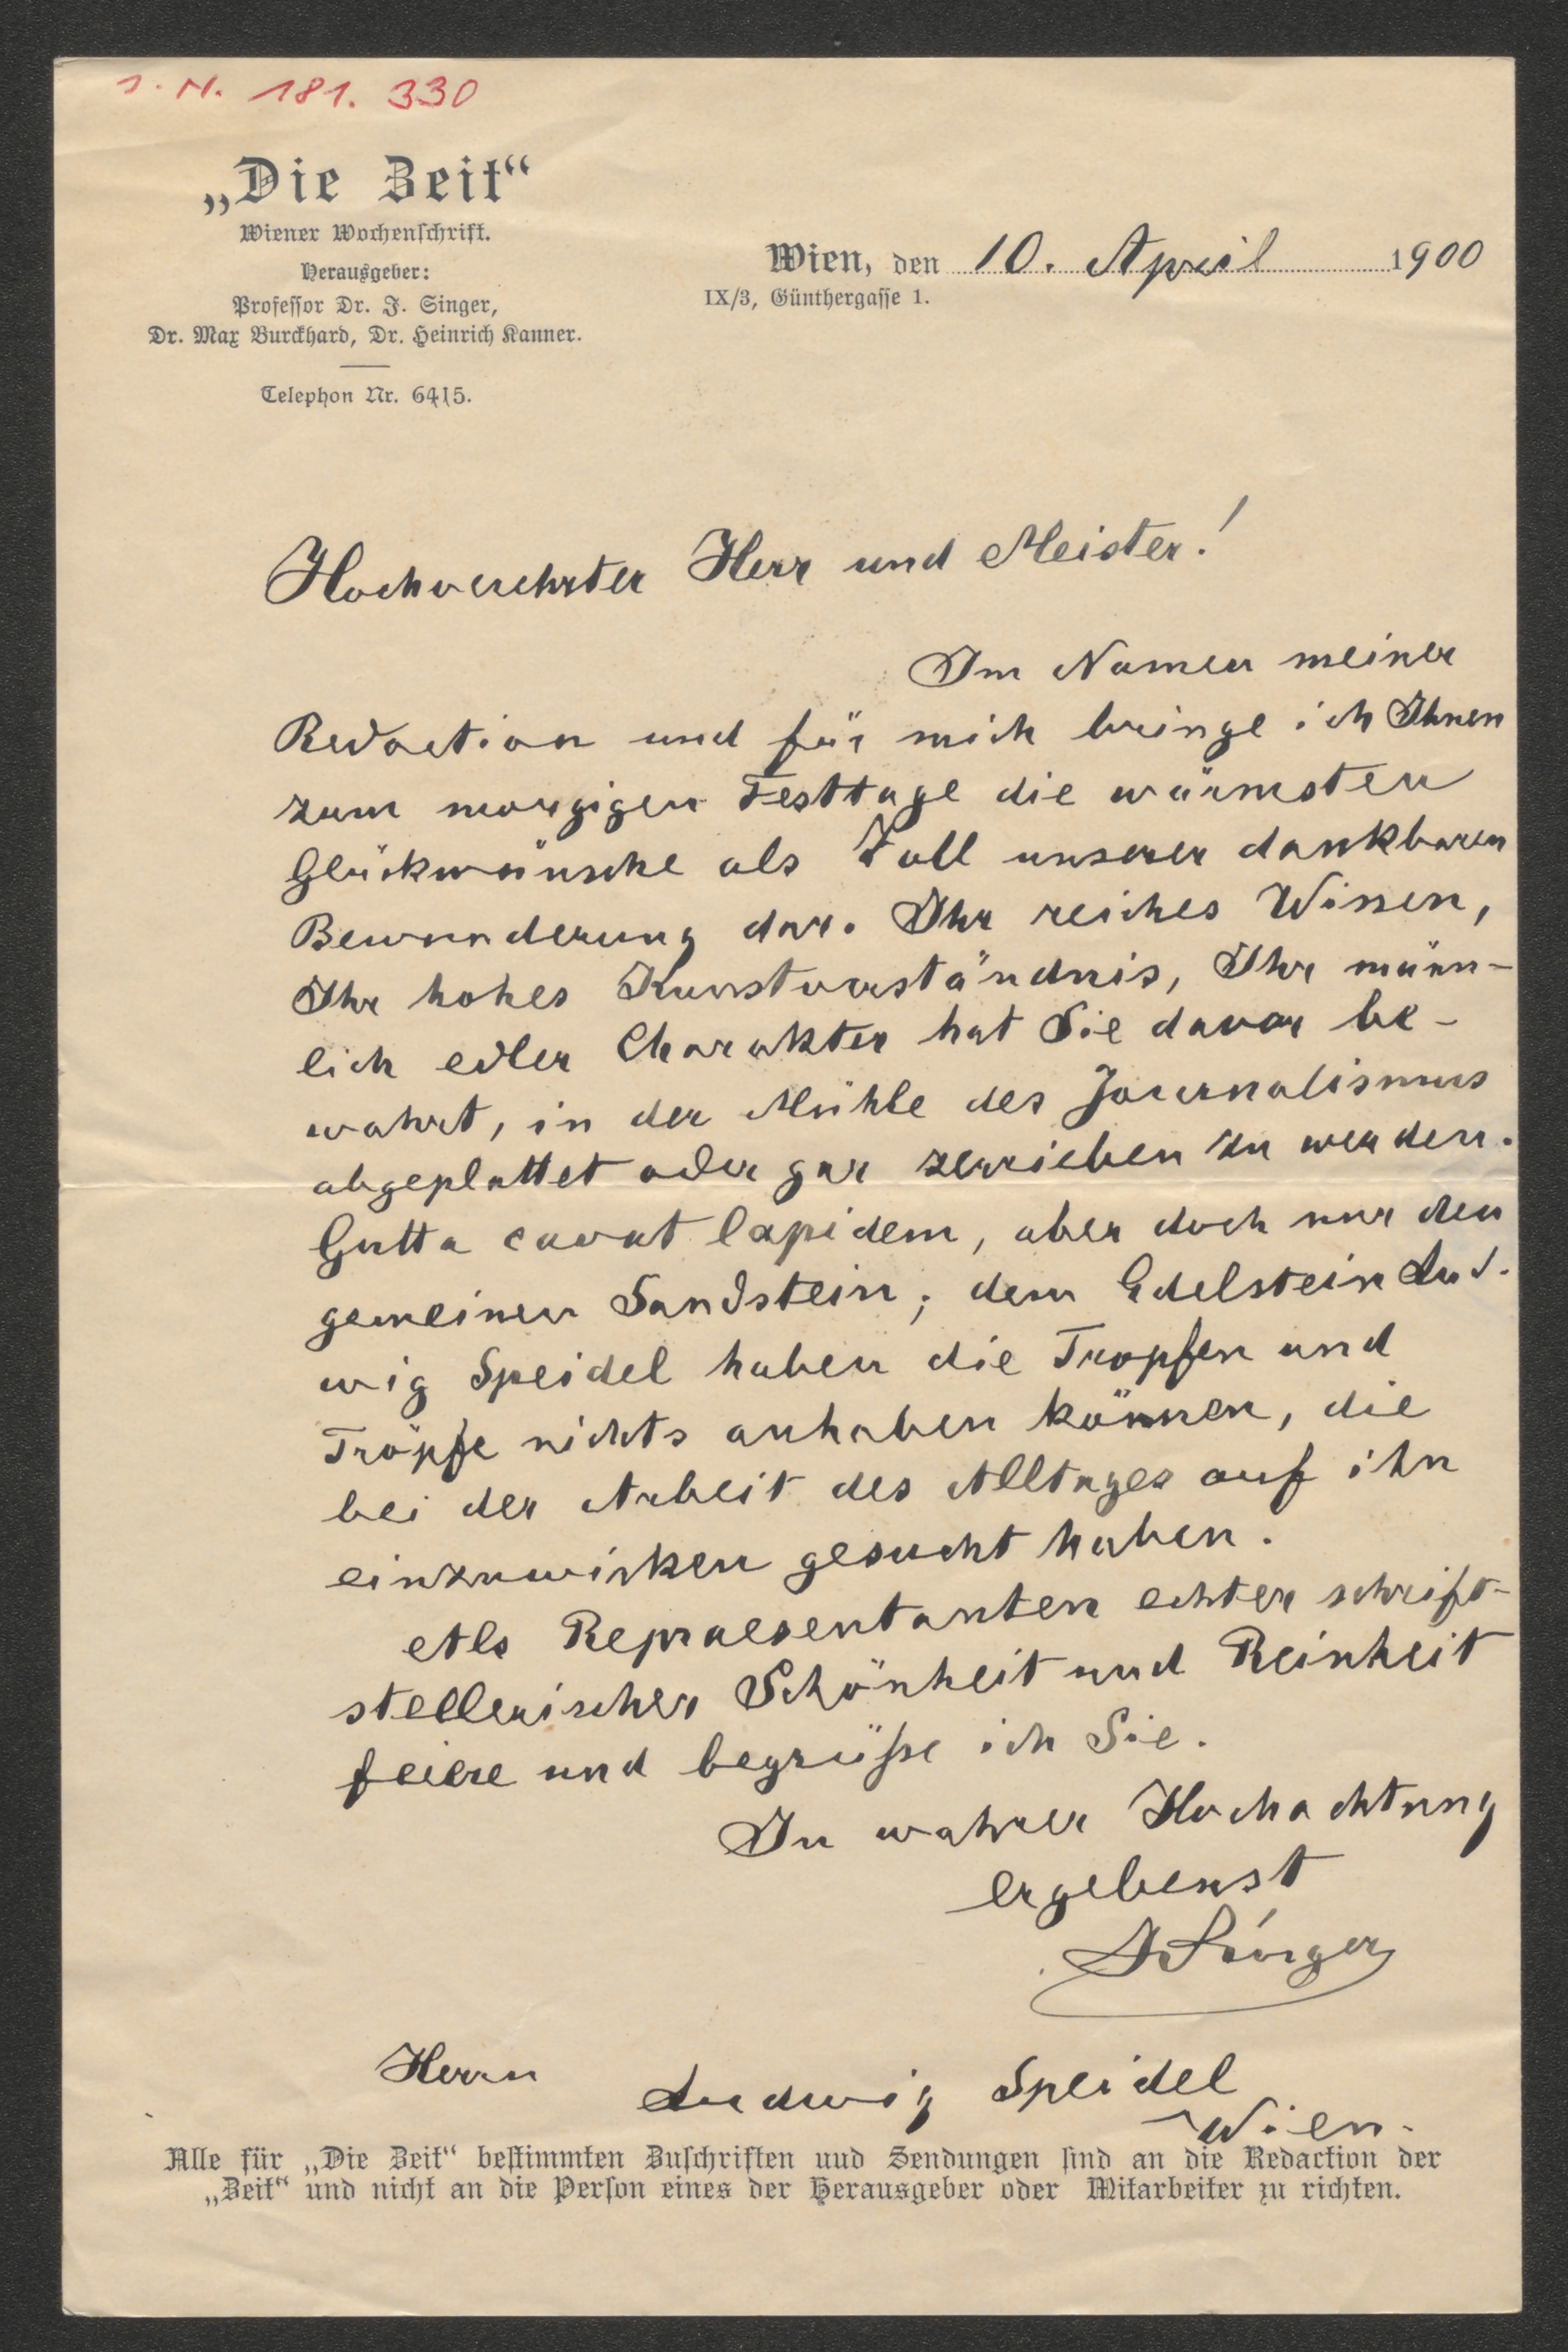 J. N. 181.330
„Die Zeit“
Wiener Wochenschrift.
Herausgeber:
Professor Dr. J. Singer,
Dr. Max Burckhard, Dr. Heinrich Kanner.
Telephon Nr. 6415.
Wien, den 10. April 1900
IX/3, Günthergasse 1.
Hochverehrter Herr und Meister!
Im Namen meiner
Redaction und für mich bringe ich Ihnen
zum morgigen Festtage die wärmsten
Glückwünsche als Zoll unserer dankbaren
Bewunderung dar. Ihr reiches Wissen,
Ihr hohes Kunstverständnis, Ihr männ-
lich edler Charakter hat Sie davor be-
wahrt, in der Mühle des Journalismus
abgeplattet oder gar zerrieben zu werden.
Gutta cavat lapidem, aber doch nur den
gemeinen Sandstein; dem Edelstein Lud-
wig Speidel haben die Tropfen und
Tröpfe nichts anhaben können, die
bei der Arbeit des Alltages auf ihn
einzuwirken gesucht haben.
Als Repraesentanten echter schrift-
stellerischer Schönheit und Reinheit
feiere und begrüße ich Sie.
In wahrer Hochachtung
ergebenst
J Singer
Herrn Ludwig Speidel
Wien.
Alle für „Die Zeit“ bestimmten Zuschriften uud Sendungen sind an die Redaction der
„Zeit“ und nicht an die Person eines der Herausgeber oder Mitarbeiter zu richten.